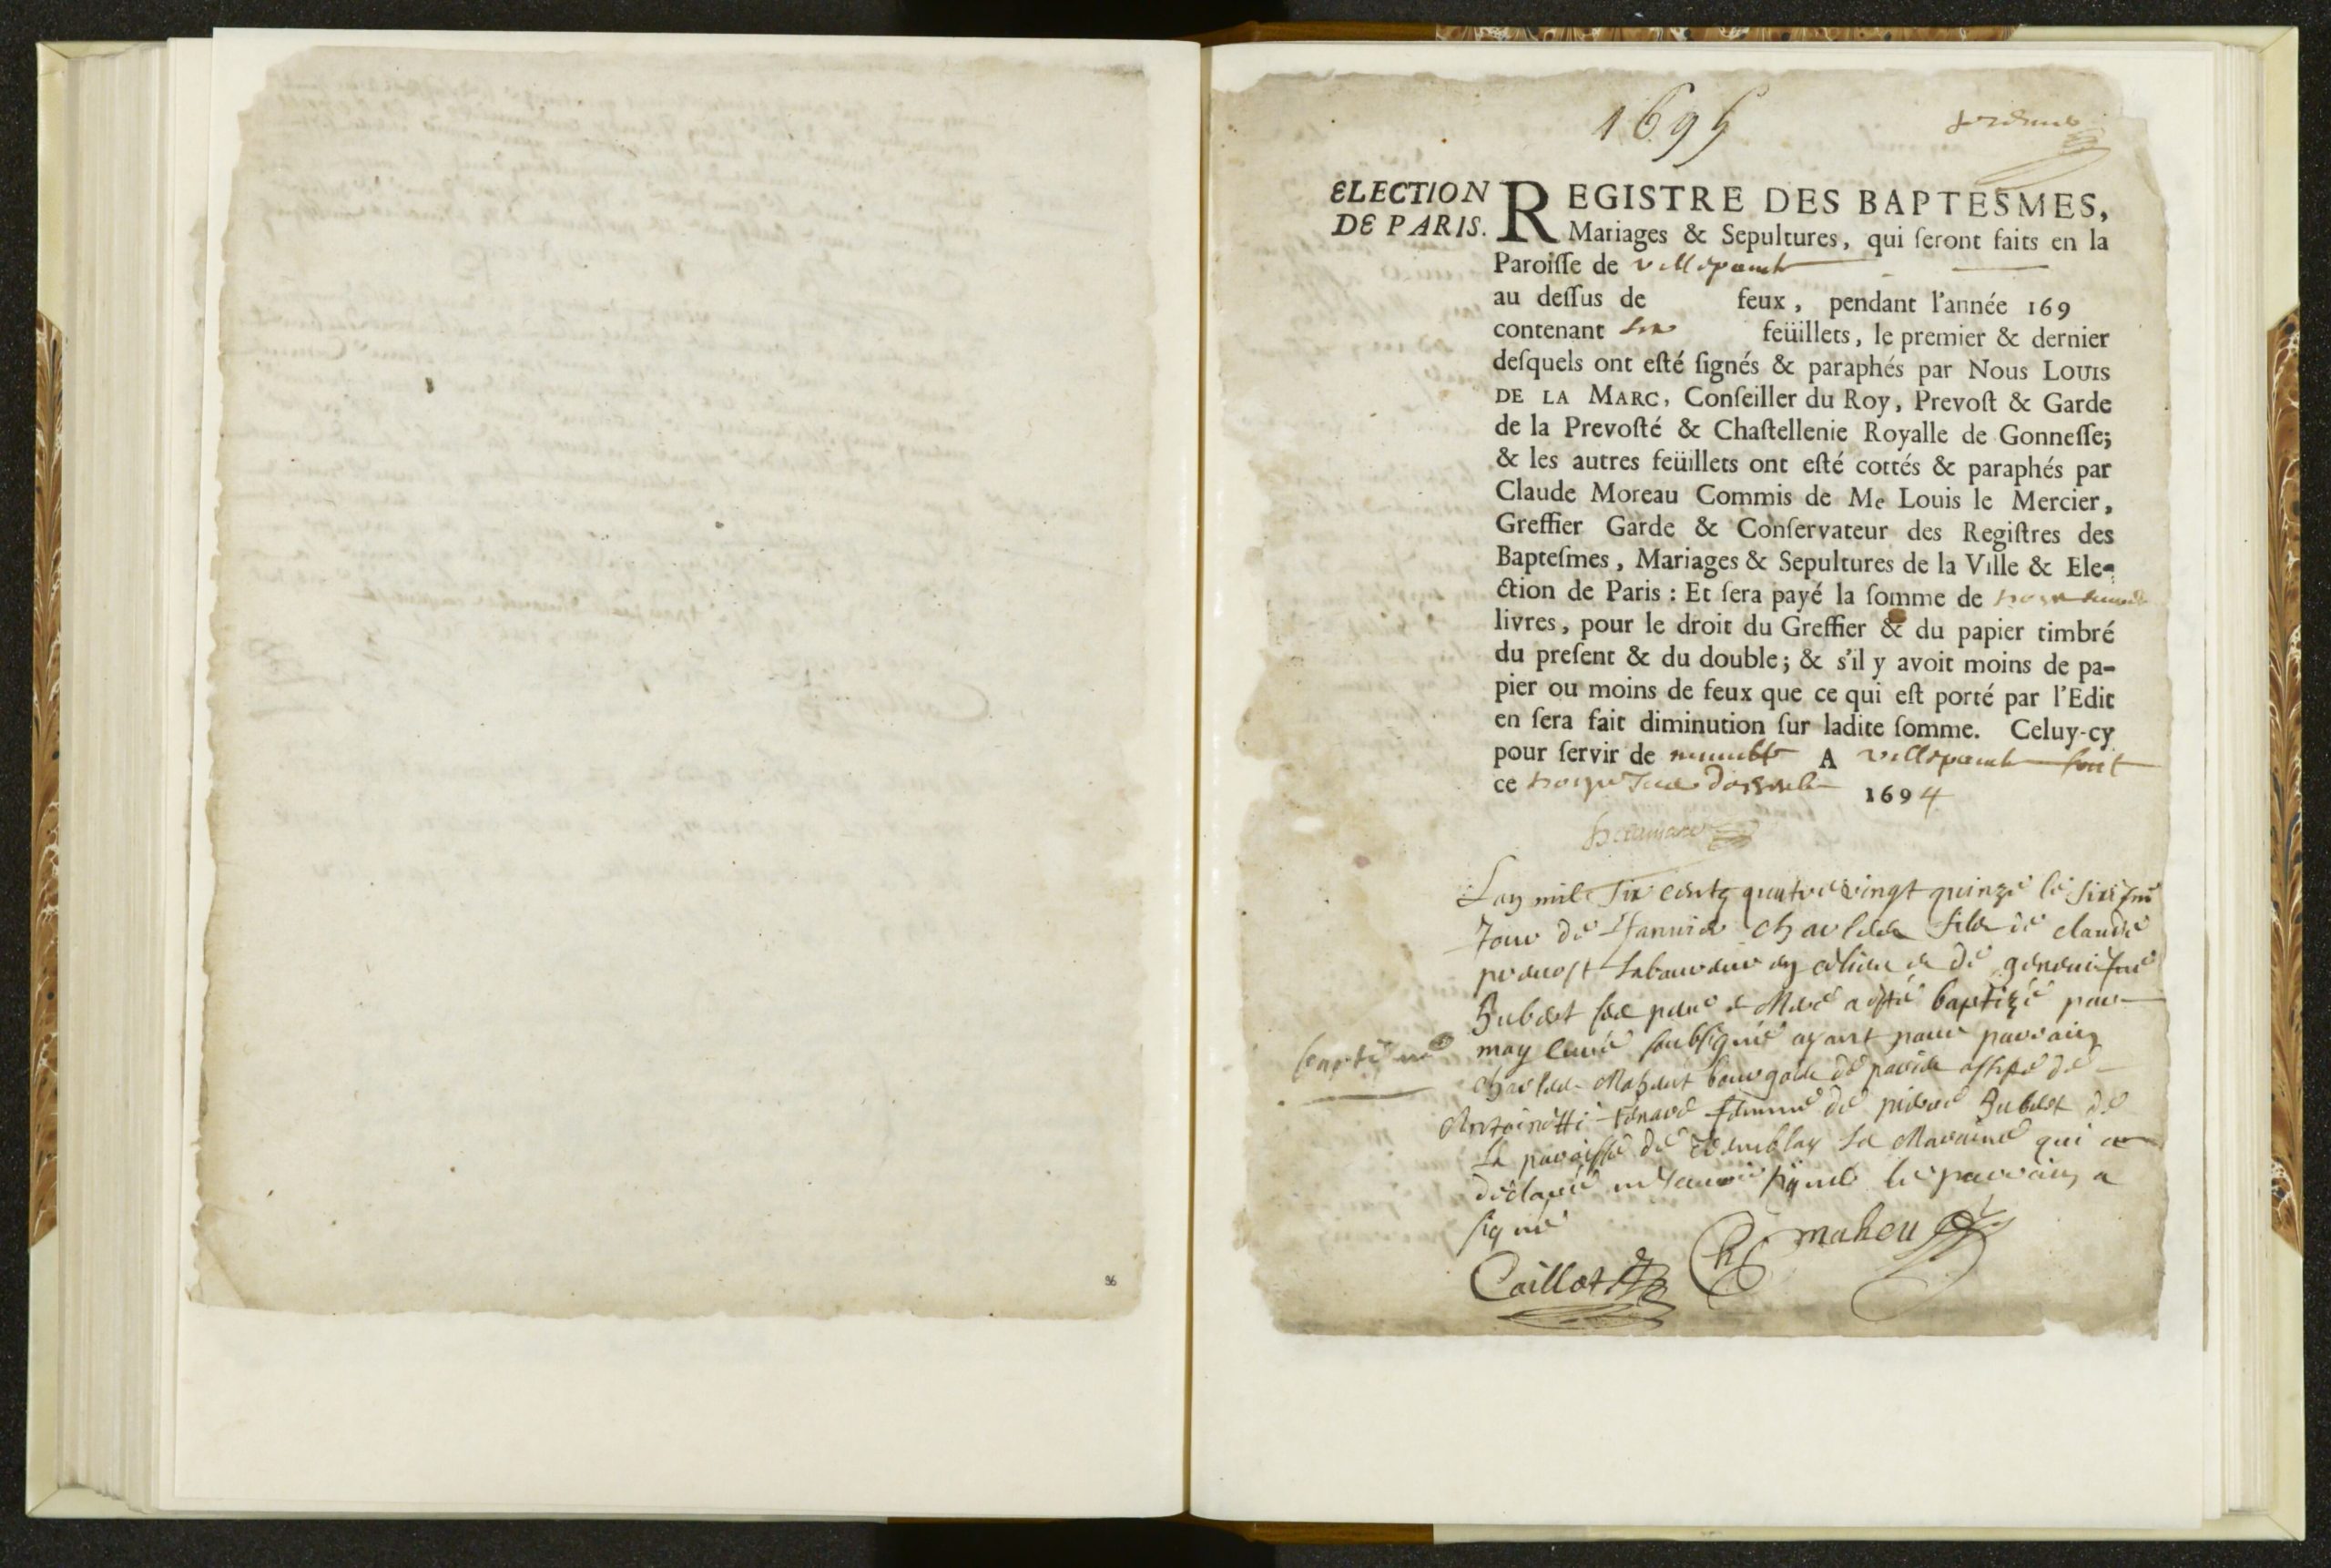 96
1695
ELECTION
DE PARIS.
REGISTRE DES BAPTESMES,
Mariages & Sepultures, qui ſeront faits en la
Paroiſſe de villepinte
au deſſus de feux, pendant l'année 169
contenant six feüillets, le premier & dernier
deſquels ont eſté ſignés & paraphés par Nous LOUIS
DE LA MARC, Conſeiller du Roy, Prevoſt & Garde
de la Prevoſté & Chaſtellenie Royalle de Gonneſſe;
& les autres feüillets ont eſté cottés & paraphés par
Claude Moreau Commis de Me Louis le Mercier,
Greffier Garde & Conſervateur des Regiſtres des
Bapteſmes, Mariages & Sepultures de la Ville & Ele-
ction de Paris : Et ſera payé la ſomme de
livres, pour le droit du Greffier & du papier timbré
du preſent & du double; & s'il y avoit moins de pa-
pier ou moins de feux que ce qui eſt porté par l'Edit
en ſera fait diminution ſur ladite ſomme. Celuy-cy
pour ſervir de minutte A villepinte fait
ce 1694
Delamarc
Lan mil six cents quatre vingt quinze le sixiesme
Jour de Janvier charles fils de claude
prevost laboureur et de geneviefve
Hubert ses pere et Mere a esté baptizé par
baptesme
moy curé soubsigné ayant pour parrain
charles Maheut bourgois de paris assisté de
Antoinette femme de pierre Hubert de
la paroisse de tremblay la Maraine qui a
declaré ne scavoir signer le parrain a
signé
Caillot Ch maheu